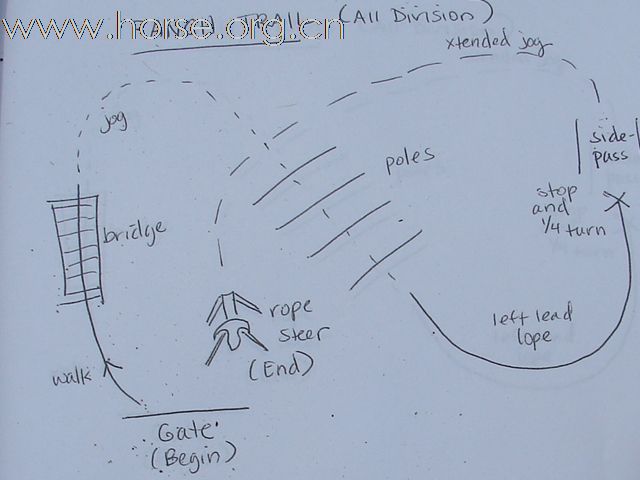 www.horse.org.cn
TRAIL (All Division)
xtended jog
jog
poles
side-
pass
stop
and
1/4 turn
bridge
rope
steer
(End)
left lead
lope
walk
Gate
(Begin)